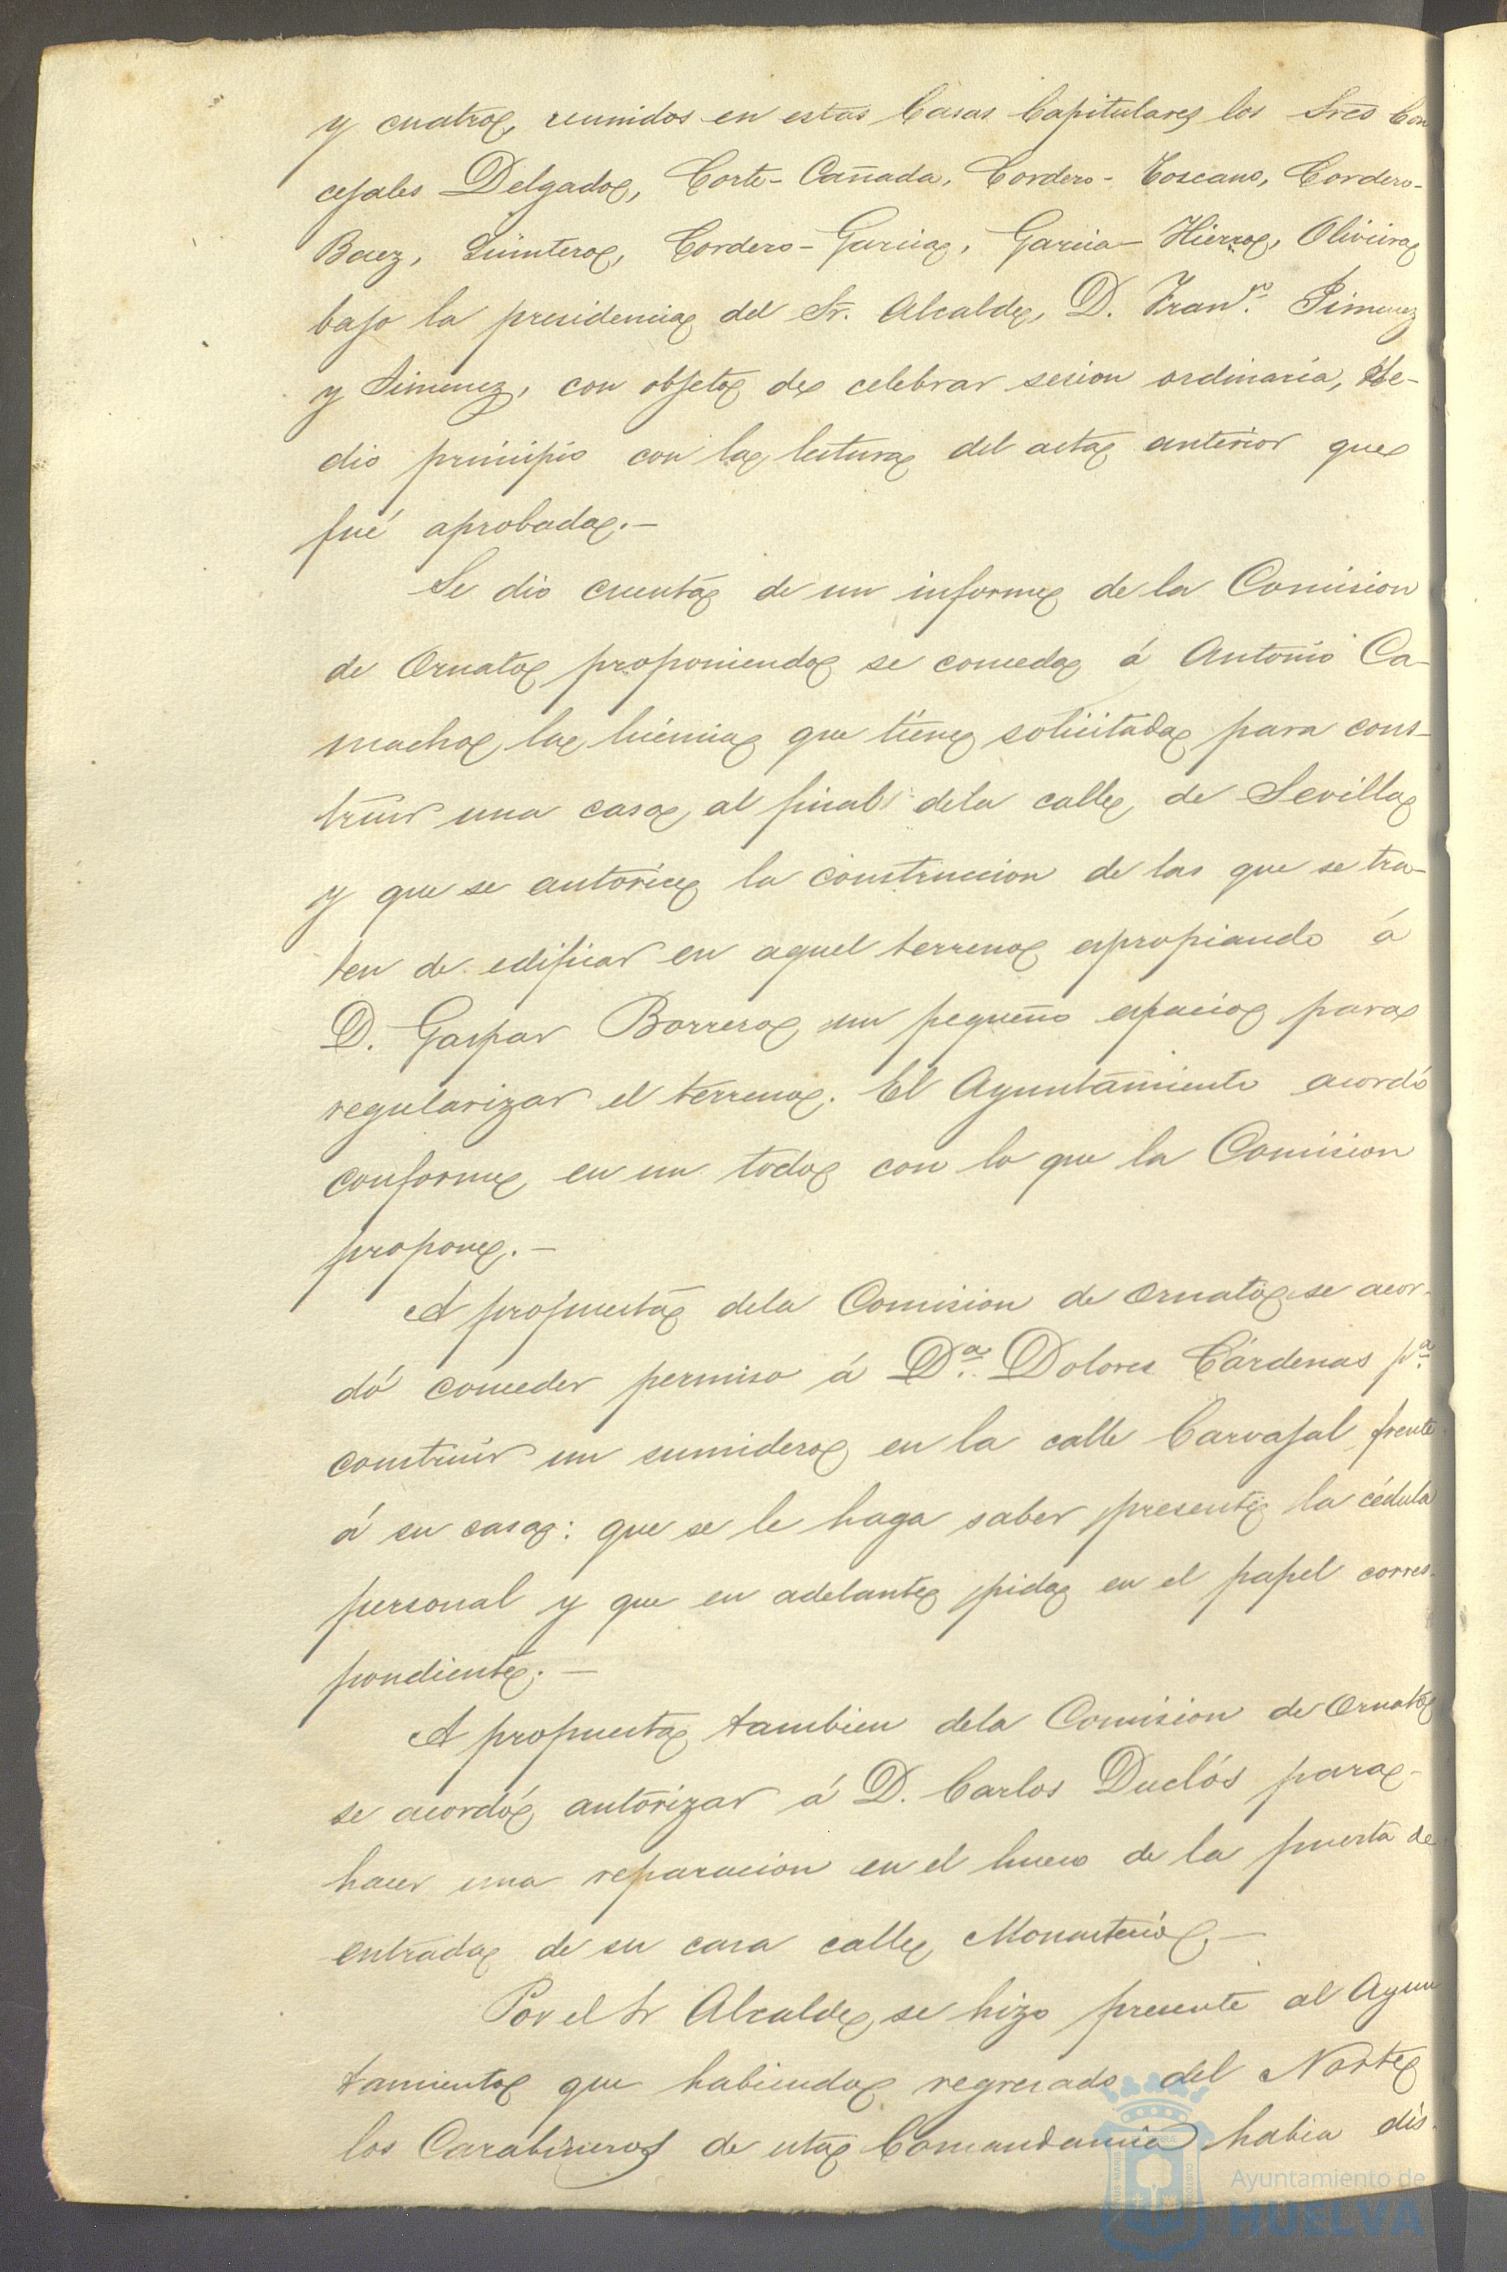 y cuatro, reunidos en estas Casas Capitulares los Sres Con
cejales Delgado, Corte-Cañada, Cordero-Toscano, Cordero-
Baez, Quintero, Cordero-Garcia, Garcia-Hierro, Oliveira
bajo la presidencia del Sr. Alcalde, D. Franco. Jimenez
y Jimenez, con objeto de celebrar sesion ordinaria, se
dio principio con la lectura del acta anterior que
fué aprobada.—
Se dio cuenta de un informe de la Comision
de Ornato proponiendo se conceda á Antonio Ca-
macho, la licencia que tiene solicitada para cons-
truir una casa, al final dela calle, de Sevilla
y que se autorice la construccion de las que se tra-
ten de edificar en aquel terreno apropiando á
D. Gaspar Borrero, un pequeño espacio para
regularizar el terreno. El Ayuntamiento acordó
conforme en un todo con lo que la Comision
propone.—
A propuesta dela Comision de Ornato se acor-
dó conceder permiso á Da. Dolores Cárdenas pa.
construir un sumidero en la calle Carvajal frente
á su casa: que se le haga saber presente la cédula
personal y que en adelante pida en el papel corres-
pondiente.—
A propuesta tambien dela Comision de Ornato
se acordó autorizar á D. Carlos Duclós para-
hacer una reparacion en el hueco de la puerta de
entrada de su casa calle, Monasterio.—
Por el Sr Alcalde, se hizo presente al Ayun
tamiento que habiendo regresado del Norte
los Carabineros de esta Comandancia habia dis-
Ayuntamiento de
HUELVA